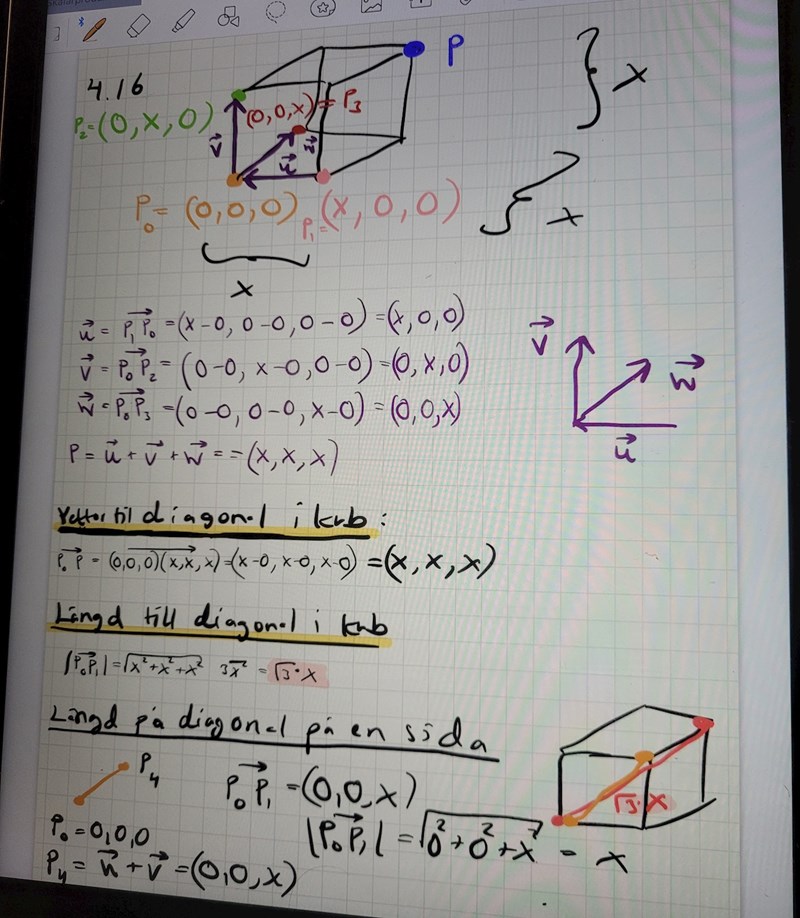 4.16
P
x
P₂=(0,x,0)
(0,0,x)=P₃
v⃗
w⃗
u⃗
P₀=(0,0,0)
P₁=(x,0,0)
x
x
u⃗ = P₁P₀⃗ =(x-0, 0-0, 0-0)=(x,0,0)
v⃗ = P₀P₂⃗ = (0-0, x-0, 0-0)=(0,x,0)
w⃗ = P₀P₃⃗ =(0-0, 0-0, x-0)=(0,0,x)
P = u⃗ + v⃗ + w⃗ = =(x,x,x)
v⃗
w⃗
u⃗
Vektor til diagonal i kub:
P₀P⃗ = (0,0,0)(x,x,x)=(x-0, x-0, x-0) =(x,x,x)
Längd till diagonal i kub
|P₀P₁⃗|=√x²+x²+x² 3x² = √3·x
Längd på diagonal på en sida
P₄
P₀P₁⃗ =(0,0,x)
√3·x
P₀=0,0,0
|P₀P₁⃗| =√0²+0²+x² = x
P₄ = u⃗ + v⃗ =(0,0,x)